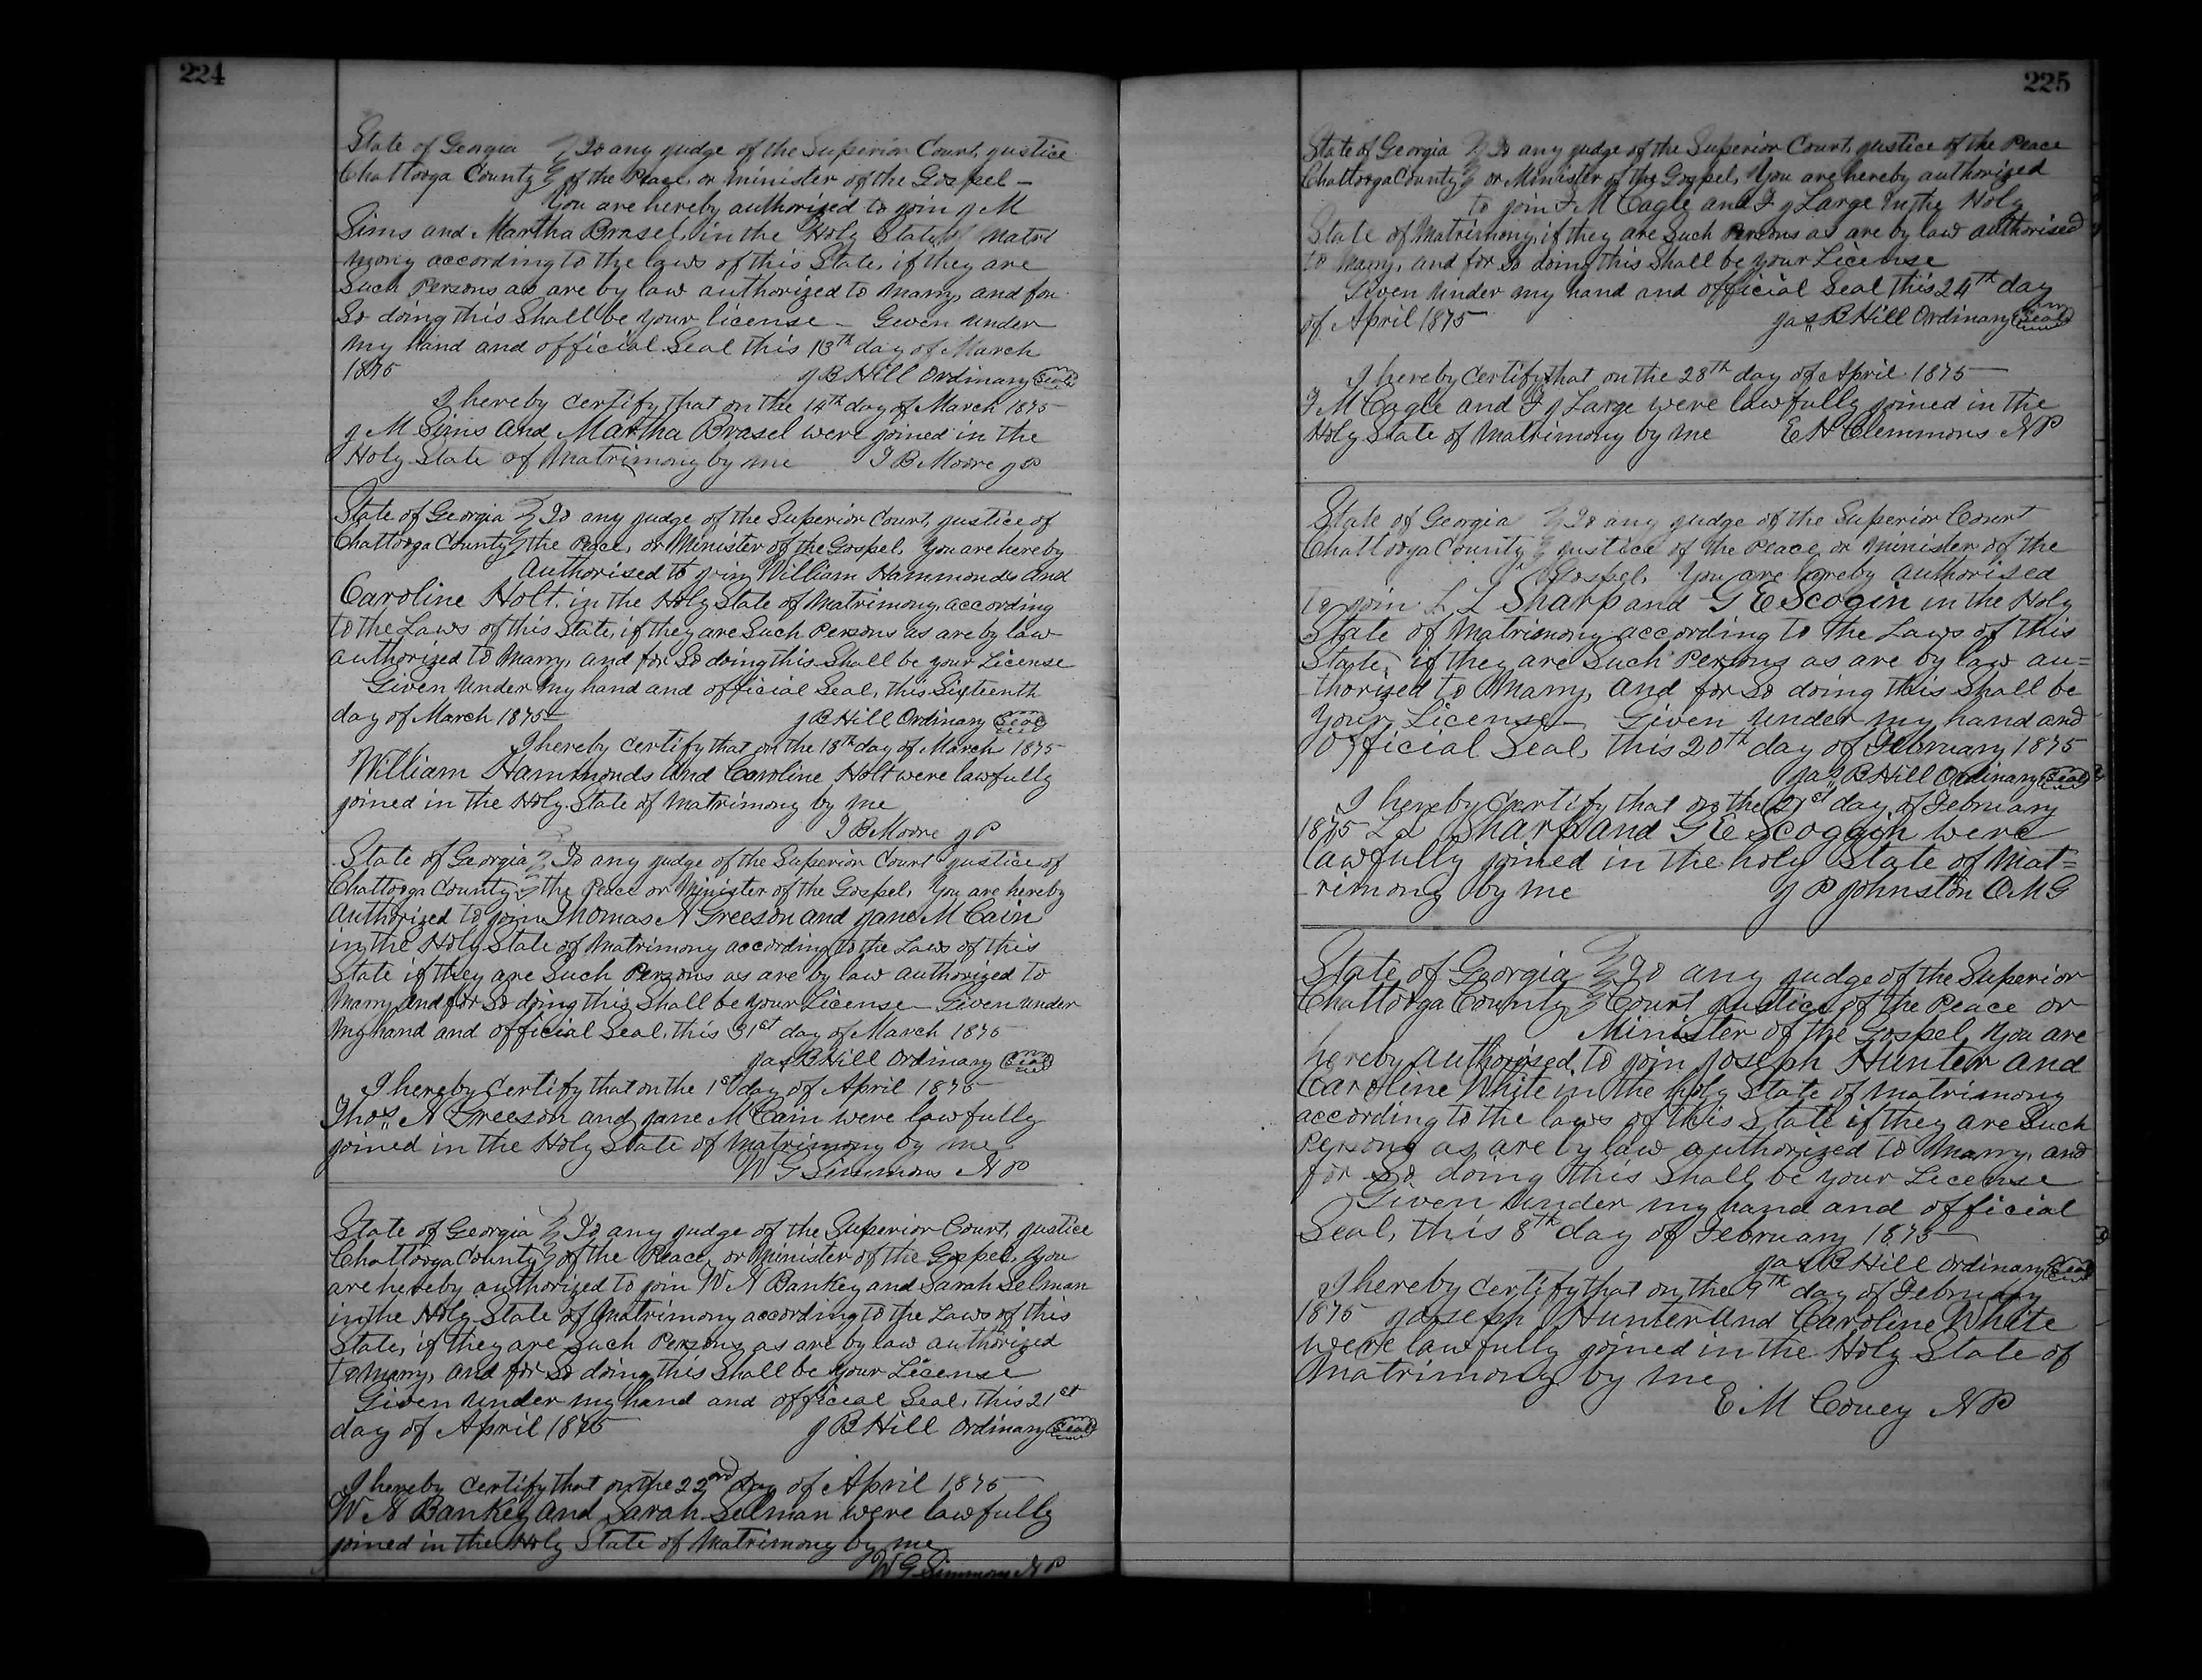 224
State of Georgia } To any judge of the Superior Court, justice
Chattooga County } of the Peace, or minister of the Gospel –
You are hereby authorized to join J M
Sims and Martha Brasel, in the Holy State of Matri
mony according to the laws of this State, if they are
Such Persons as are by law authorized to marry, and for
So doing this Shall be your license – Given under
my hand and official Seal this 13th day of March
1875 J B Hill Ordinary Seal
I hereby certify that on the 14th day of March 1875
J M Sims and Martha Brasel were joined in the
Holy State of Matrimony by me T B Moore JP
State of Georgia } To any judge of the Superior Court, justice of
Chattooga County } the Peace, or Minister of the Gospel, You are hereby
Authorised to join William Hammonds and
Caroline Holt, in the Holy State of Matrimony, according
to the Laws of this State, if they are Such Persons as are by law
authorized to Marry, and for So doing this Shall be your License
Given Under My hand and official Seal, this Sixteenth
day of March 1875 J B Hill Ordinary Seal
I hereby certify that on the 18th day of March 1875
William Hammonds and Caroline Holt were lawfully
joined in the Holy State of Matrimony by me
T B Moore JP
State of Georgia } To any judge of the Superior Court justice of
Chattooga County } the Peace or Minister of the Gospel, You are hereby
Authorized to join Thomas A Greeson and Jane M Cain
in the Holy State of Matrimony according to the Laws of this
State if they are Such Persons as are by law authorized to
Marry, and for So doing this Shall be your License – Given under
My hand and official Seal, this 31st day of March 1875
Jas B Hill Ordinary Seal
I hereby certify that on the 1st day of April 1875
Thos. A Greeson and Jane M Cain were lawfully
joined in the Holy State of Matrimony by me
W G Simmons N P
State of Georgia } To any judge of the Superior Court, justice
Chattooga County } of the Peace, or Minister of the Gospel, You
are hereby authorized to join W N Bankey and Sarah Selman
in the Holy State of Matrimony according to the Laws of this
State, if they are Such Persons as are by law authorized
to Marry, and for So doing this Shall be Your License
Given under my hand and official Seal, this 21st
day of April 1875 J B Hill Ordinary Seal
I hereby certify that on the 22nd day of April 1875
W N Bankey and Sarah Selman were lawfully
joined in the Holy State of Matrimony by me
W G Simmons N P
225
State of Georgia } To any judge of the Superior Court, justice of the Peace
Chattooga County } or Minister of the Gospel, You are hereby authorized
to join F M Cagle and F J Large In the Holy
State of Matrimony, if they are Such Persons as are by law authorised
to Marry, and for So doing this Shall be your License
Given under my hand and official Seal this 24th day
of April 1875 Jas B Hill Ordinary Seal
I hereby certify that on the 28th day of April 1875
F M Cagle and F J Large were lawfully joined in the
Holy State of Matrimony by me E H Clemmons N P
State of Georgia } To any judge of the Superior Court
Chattooga County } justice of the Peace, or Minister of the
Gospel, You are hereby authorised
to join L L Sharp and G E Scogin in the Holy
State of Matrimony according to the Laws of this
State, if they are Such Persons as are by law au=
thorized to Marry, and for So doing this Shall be
Your License – Given under my hand and
Official Seal, this 20th day of February 1875
Jas B Hill Ordinary Seal
I hereby Certify that on the 21st day of February
1875 L L Sharp and G E Scoggin were
lawfully joined in the holy State of Mat=
rimony by me J P Johnston O M G
State of Georgia } To any judge of the Superior
Chattooga County } Court justice of the Peace or
Minister of the Gospel, You are
hereby authorised to join Joseph Hunter and
Caroline White in the holy State of matrimony
according to the laws of this State if they are Such
Persons as are by law authorized to Marry, and
for So doing this Shall be your License
Given under my hand and official
Seal, this 8th day of February 1875
Jas B Hill Ordinary Seal
I hereby certify that on the 9th day of February
1875 Joseph Hunter and Caroline White
were lawfully joined in the Holy State of
Matrimony by me
E M Couey N P